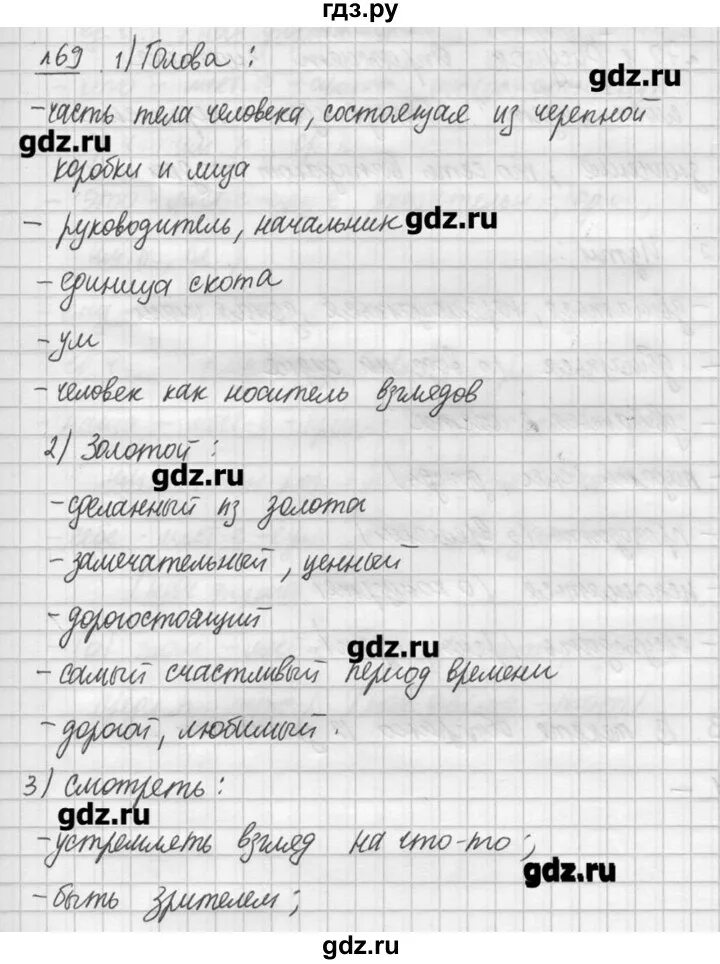 гдз.ру
№69 1) Голова:
gdz.ru
-часть тела человека, состоящая из черепной
gdz.ru
коробки и лица
- руководитель, начальник
gdz.ru
-единица скота
-ум
-человек как носитель взглядов
2) Золотой:
gdz.ru
-сделанный из золота
-замечательный, ценный
-дорогостоящий
gdz.ru
-самый счастливый период времени
-дорогой, любимый.
3) Смотреть:
gdz.ru
-устремлять взгляд на что-то;
gdz.ru
-быть зрителем;
gdz.ru